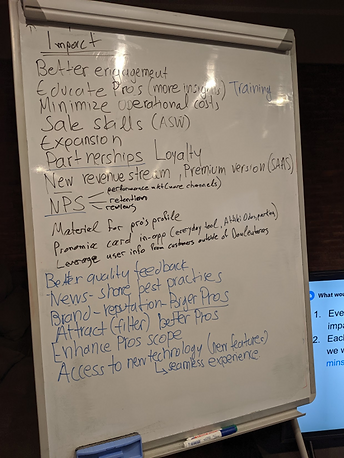 Impact
Better engagement
Educate Pros (more insights) Training
Minimize operational costs
Sale skills (ASW)
Expansion
Partnerships Loyalty
New revenue stream, Premium version (SAAS)
performance
NPS retention
reviews
Materiel for pro's profile
card in-app (everyday tool,
Leverage user info from customers outside of
Better quality feedback
News - share best practices
Brand - reputation - Bigger Pros
Attract (filter) better Pros
Enhance Pros scope
Access to new technology (new features)
seamless experience
What wou
1. Eve
impa
2. Eac
we w
mins